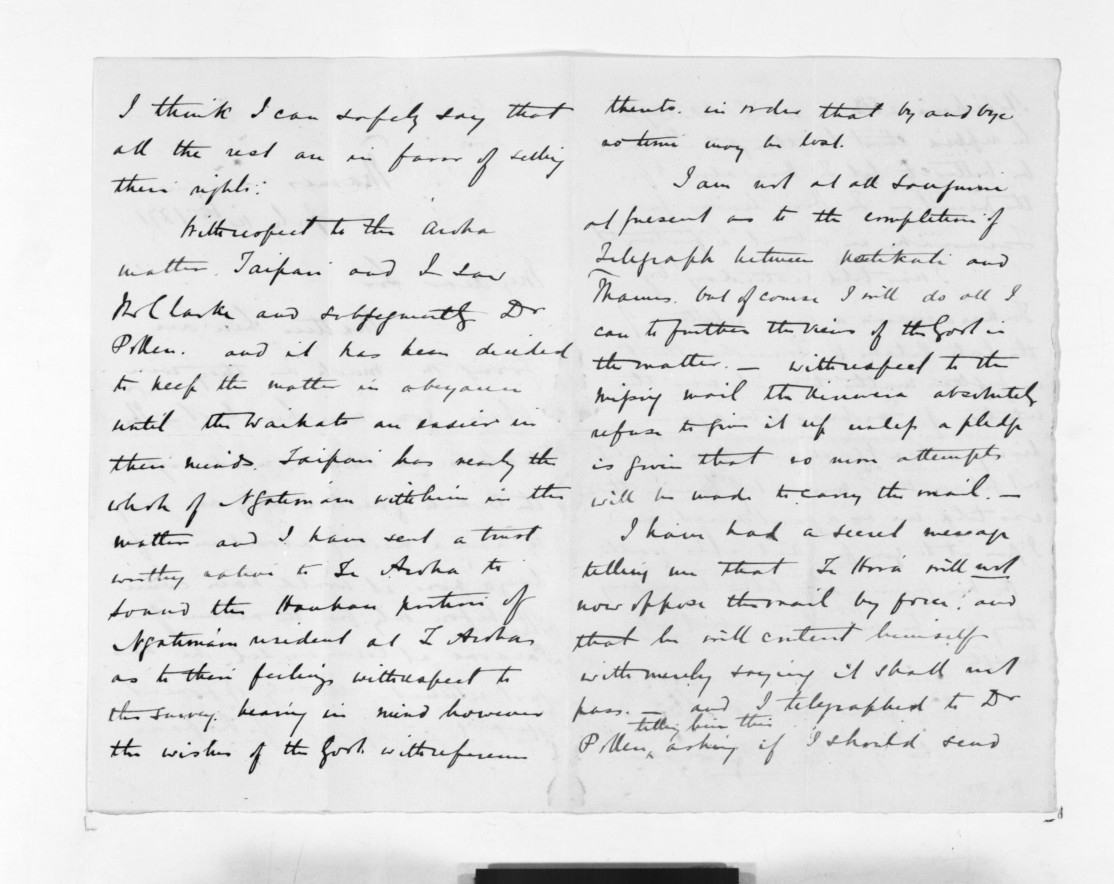 I think I can safely say that
all the rest are in favor of selling
their rights.
With respect to the Aroha
matter. Taipari and I saw
Mr Clarke and subsequently Dr
Pollen. and it has been decided
to keep the matter in abeyance
until the Waikato are easier in
their minds. Taipari has nearly the
whole of Ngatimaru with him in this
matter and I have sent a trust
worthy native to Te Aroha to
sound the Hauhau portion of
Ngatimaru resident at Te Aroha,
as to their feelings with respect to
the survey, bearing in mind however
the wishes of the Govt with reference
thereto. in order that by and bye
no time may be lost.
I am not at all sanguine
at present as to the completion of
Telegraph between Katikati and
Thames. but of course I will do all I
can to further the views of the Govt in
the matter. — with respect to the
missing mail the absolutely
refuse to give it up unless a pledge
is given that no more attempts
will be made to carry the mail. —
I have had a secret message
telling me that Te Hira will not
now oppose the mail by force, and
that he will content himself
with merely saying it shall not
pass. — and I telegraphed to Dr
telling him this
Pollen, asking if I should send